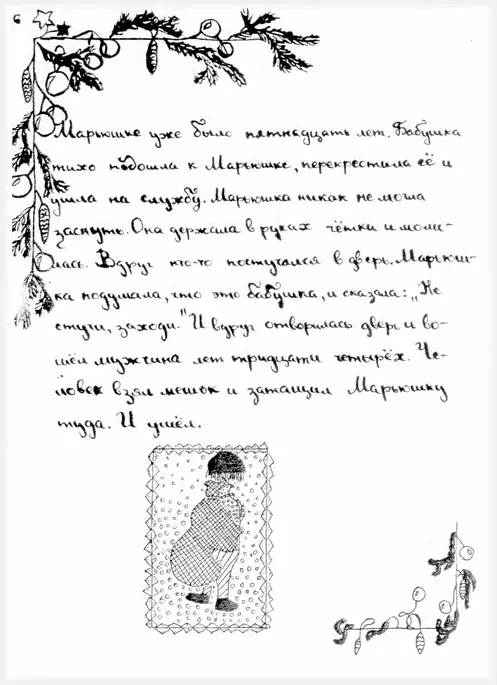 6
Марьюшке уже было пятнадцать лет. Бабушка
тихо подошла к Марьюшке, перекрестила её и
ушла на службу. Марьюшка никак не могла
заснуть. Она держала в руках чётки и моли-
лась. Вдруг кто-то постучался в дверь. Марьюш-
ка подумала, что это бабушка, и сказала: „Не
стучи, заходи." И вдруг отворилась дверь и во-
шёл мужчина лет тридцати четырёх. Че-
ловек взял мешок и затащил Марьюшку
туда. И ушёл.